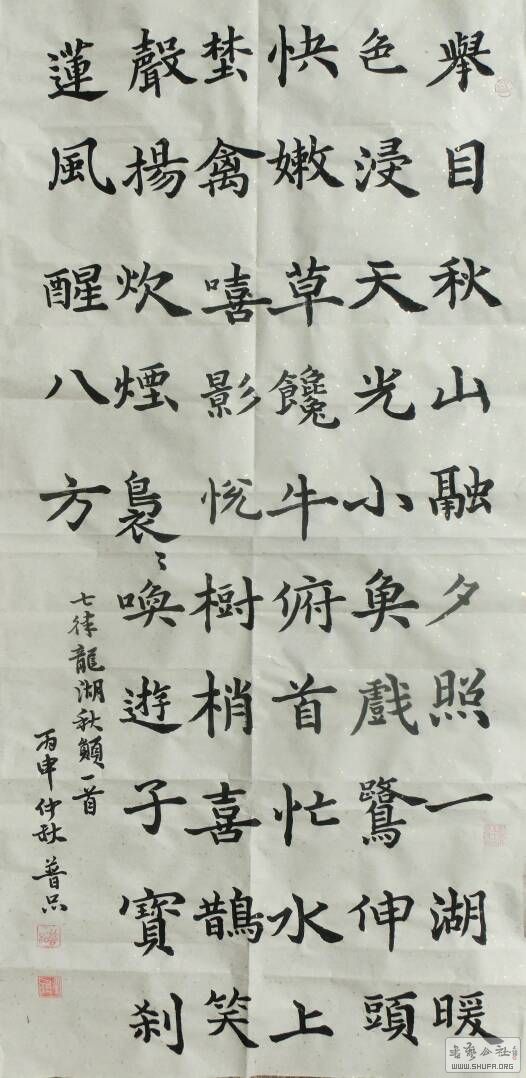 舉目秋山融夕照一湖暖
色浸天光小魚戲鷺伸頭
快嫩草饞牛俯首忙水上
埜禽嘻影悅樹梢喜鵲笑
聲揚炊煙裊〻喚遊子寶刹
蓮風醒八方
七律龍湖秋韻一首
丙申仲秋普品
书艺公社
WWW.SHUFA.ORG